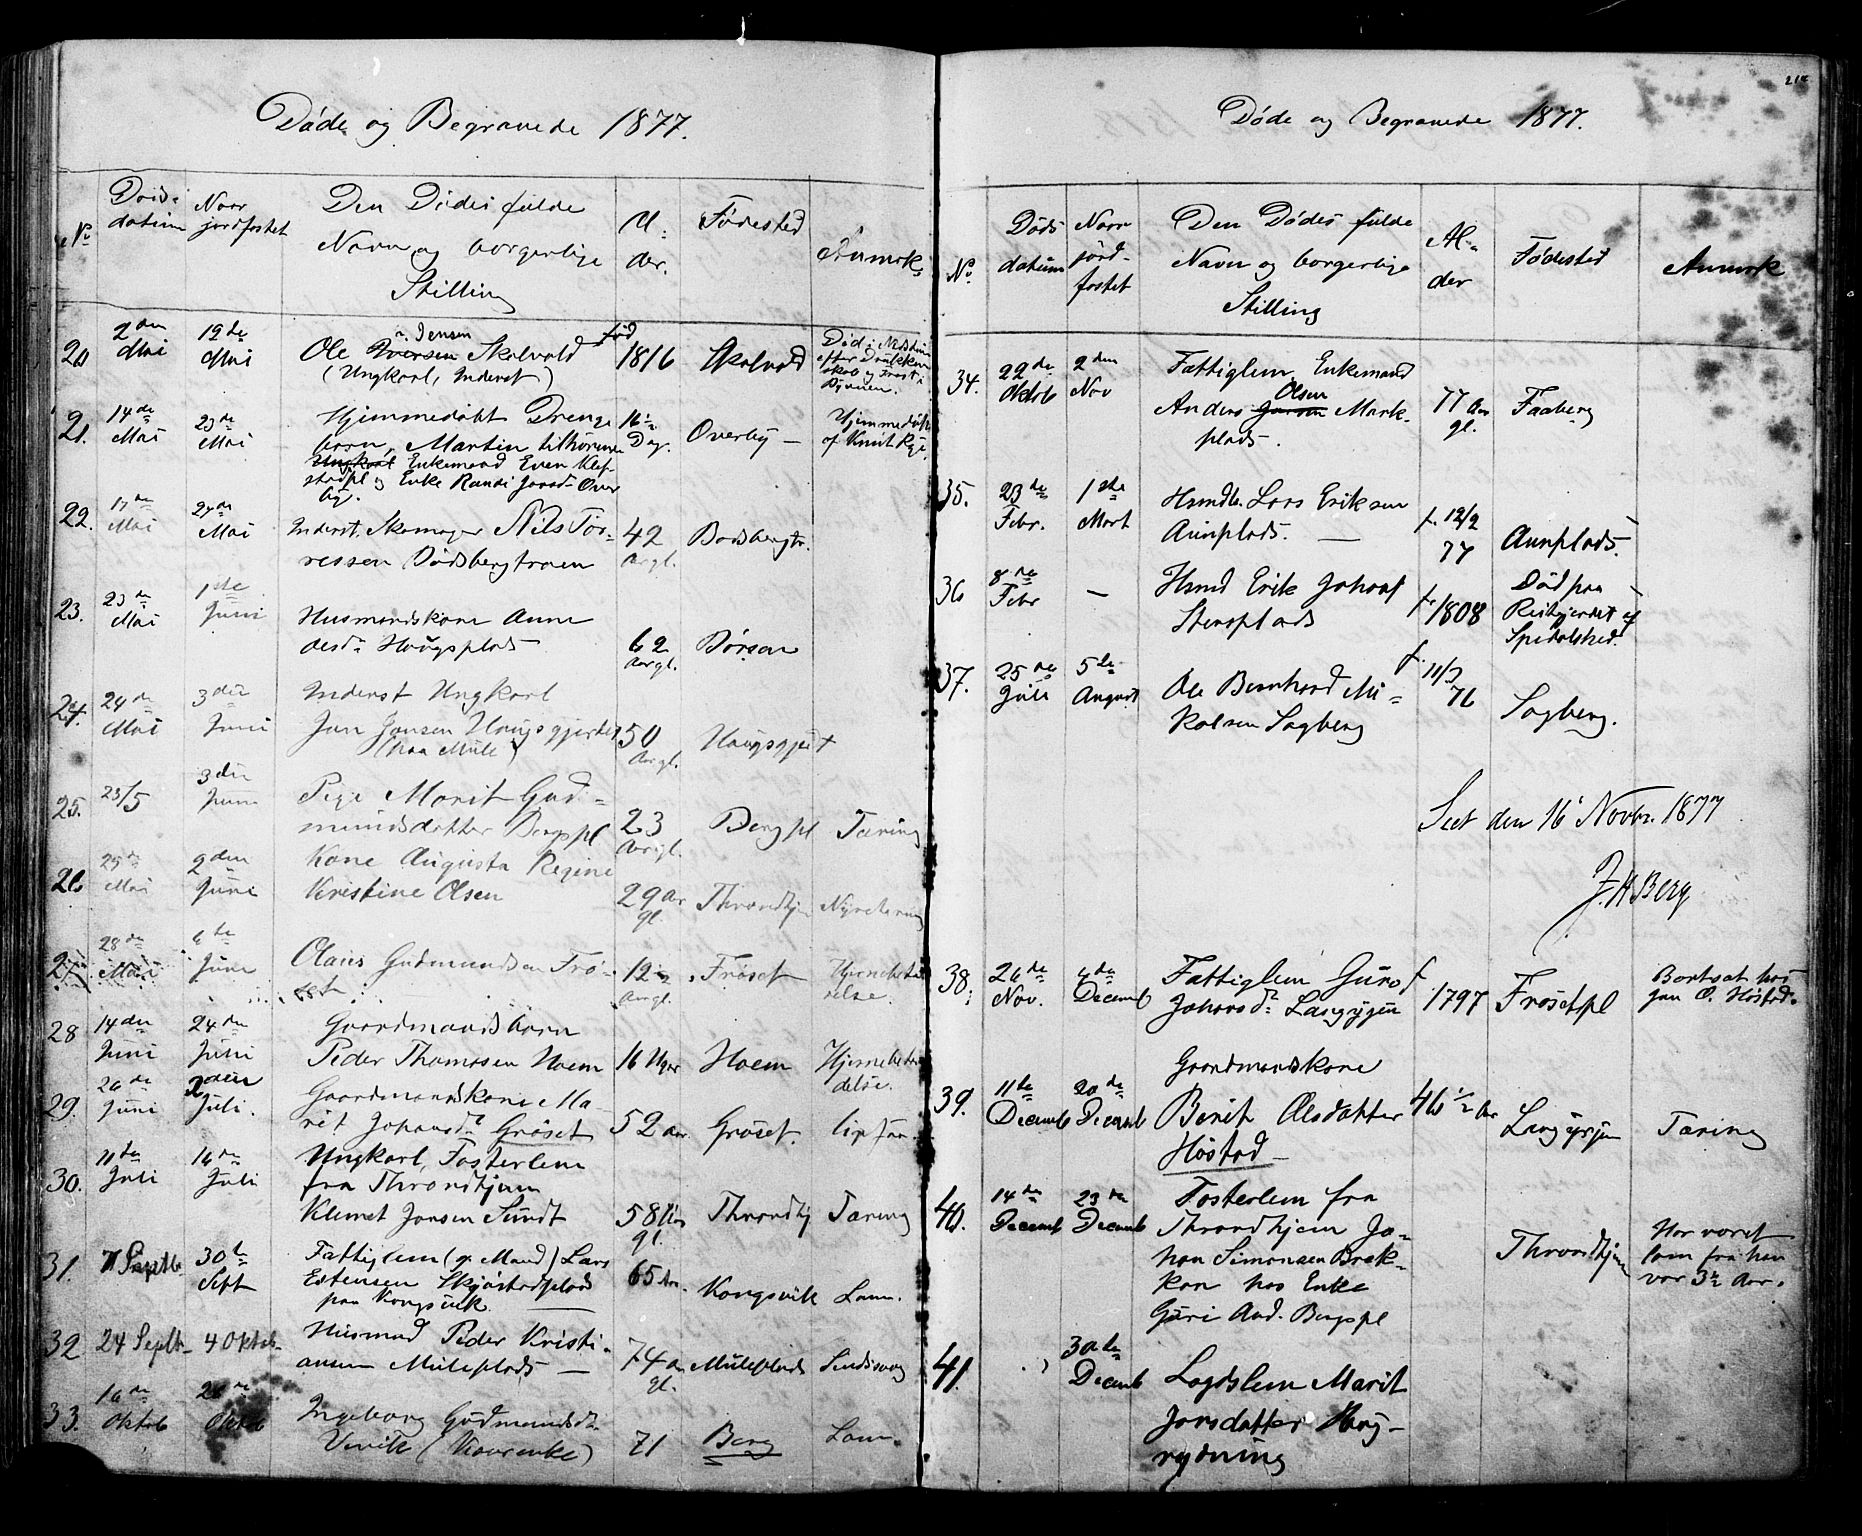 Døde og Begravede 1877.
No
Døds datum
Naar jordfæstet
Den Dødes fulde
Navn og borgerlige
Stilling
Al-
der.
Fødested
Anmærk.
20 2den Mai 19de Mai
n. Jensen
Ole Iversen Skalvold
(Ungkarl, Inderst)
fød 1816 Skalvold
21. 14de Mai 23de Mai
Hjemmedøbt Drenge
barn, Martin tilhørende
Ungkarl Enkemand Even Klef-
stadpl og Enke Randi Joosd. Over
by.
16 Dag. Overby —
Hjemmedøbt
af Knut Rye
22. 17de Mai 27de Mai
Inderst. Skomager Nils Tor-
ressen Bødsbergtrøen
42 Aar gl. Bødsbergtr.
23. 23de Mai 1ste Juni
Husmandskone Anne
desd. Haugsplads
62 Aar gl. Børsen
24. 24de Mai 3die Juni
Inderst Ungkarl
Jon Jonsen Haugsgjerdet
(paa Mule)
50 Aar gl. Haugsgjerdet
25. 23/5 3die Juni
Pige Marit Gud-
mundsdatter Bergspl
23 Aar gl. Bergpl Tæring
26 25de Mai 2den Juni
Kone Augusta Regine
Kristine Olsen
29 Aar gl. Throndhjem Nyretæring
27. 28de Mai 6te Juni
Olaus Gudmundsen Frø-
set
12 Aar gl. Frøset
28 14den Juni 24de Juni
Gaardmandsbarn
Peder Thomasen Hoem
16 Uger Hoem Hjernebetæn
delse.
29. 26de Juni 2den Juli.
Gaardmandskone Ma-
rit Johansd. Grøset
52 aar Grøset.
30. 11te Juli 16de Juli
Ungkarl, Fosterlem
fra Throndhjem
Klemet Jonsen Sundt
58 Aar gl. Throndhj Tæring
31. 7 Septb. 30te Sept
Fattiglem (g. Mand) Lars
Estensen Skjøstadplads
paa Kongsvik
65 Aar. Kongsvik Lam.
32 24 Septb. 4 Oktob.
Husmand Peder Kristi-
ansen Muleplads —
74 Aar gl. Muleplads
33. 16de Oktob 26de Oktob
Ingeborg Gudmundsd.
Vevik (Kaarenke)
71 Berg Lam.
Døde og Begravede 1877.
No.
Døds
datum
Naar
jord-
fæstet
Den Dødes fulde
Navn og borgerlige
Stilling
Al-
der
Fødested
Anmærk
34. 22de Oktob 2den Nov
Fattiglem, Enkemand
Olsen
Anders Mark-
plads.
77 Aar gl. Faaberg
35. 23de Febr. 1ste Mart
Husmdb. Lars Eriksen
Aunplads. —
f. 12/2 77 Aunplads.
36 8de Febr —
Husmd Erik Johans
Stensplads
f. 1808
Død paa
Reitgjerdet af
Spedalsked.
37. 25de Juli 5te August
Ole Bernhard Mi-
kalsen Sagberg
f. 11/3 76 Sagberg.
Seet den 16 Novbr. 1877
J. H Berg
38. 26de Nov. Decemb
Fattiglem Guro
Johansd. Langøyen
f. 1797 Frøsetpl
Bortsat hos
Jon O. Høstad.
39. 11te Decemb 20de Decemb
Gaardmandskone
Berit Olsdatter
Høstad —
46 1/2 Aar Langøyen Tæring
40. 14de Decemb 23de Decemb
Fosterlem fra
Throndhjem Jo-
han Simonsen Brek-
kan hos Enke
Guri And. Bergpl
Throndhjem
Har været
lam fra han
var 3½ Aar.
41. 30te Decemb
Lægdslem Marit
Jonsdatter Haug-
rydning